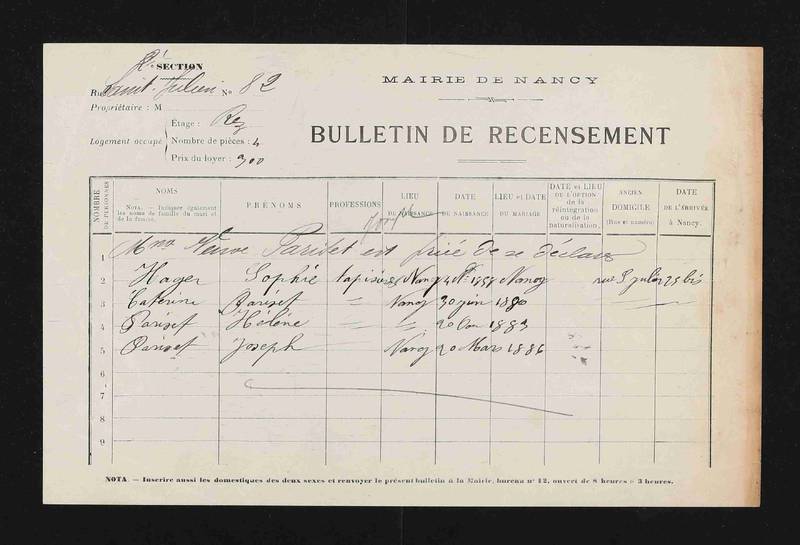 SECTION
MAIRIE DE NANCY
Rue Saint-Julien N° 82
Propriétaire : M
Étage : Rez
BULLETIN DE RECENSEMENT
Logement occupé
Nombre de pièces : 4
Prix du loyer : 300
NOMBRE DE PERSONNES
NOMS
NOTA. — Indiquer également les noms de famille du mari et de la femme.
PRÉNOMS
PROFESSIONS
LIEU DE NAISSANCE
DATE DE NAISSANCE
LIEU et DATE DU MARIAGE
DATE et LIEU DE L'OPTION de la réintégration ou de la naturalisation.
ANCIEN DOMICILE (Rue et numéro)
DATE DE L'ARRIVÉE à Nancy.
1 Mme Veuve Pariset est priée de se déclarer
2 Hager Sophie Nancy Nancy rue S Julien 25 bis
3 Caterine Pariset Nancy 30 juin 1880
4 Pariset Hélène 1883
5 Pariset Joseph Nancy 20 Mars 1886
6
7
8
9
NOTA. — Inscrire aussi les domestiques des deux sexes et renvoyer le présent bulletin à la Mairie, bureau n° 12, ouvert de 8 heures à 3 heures.